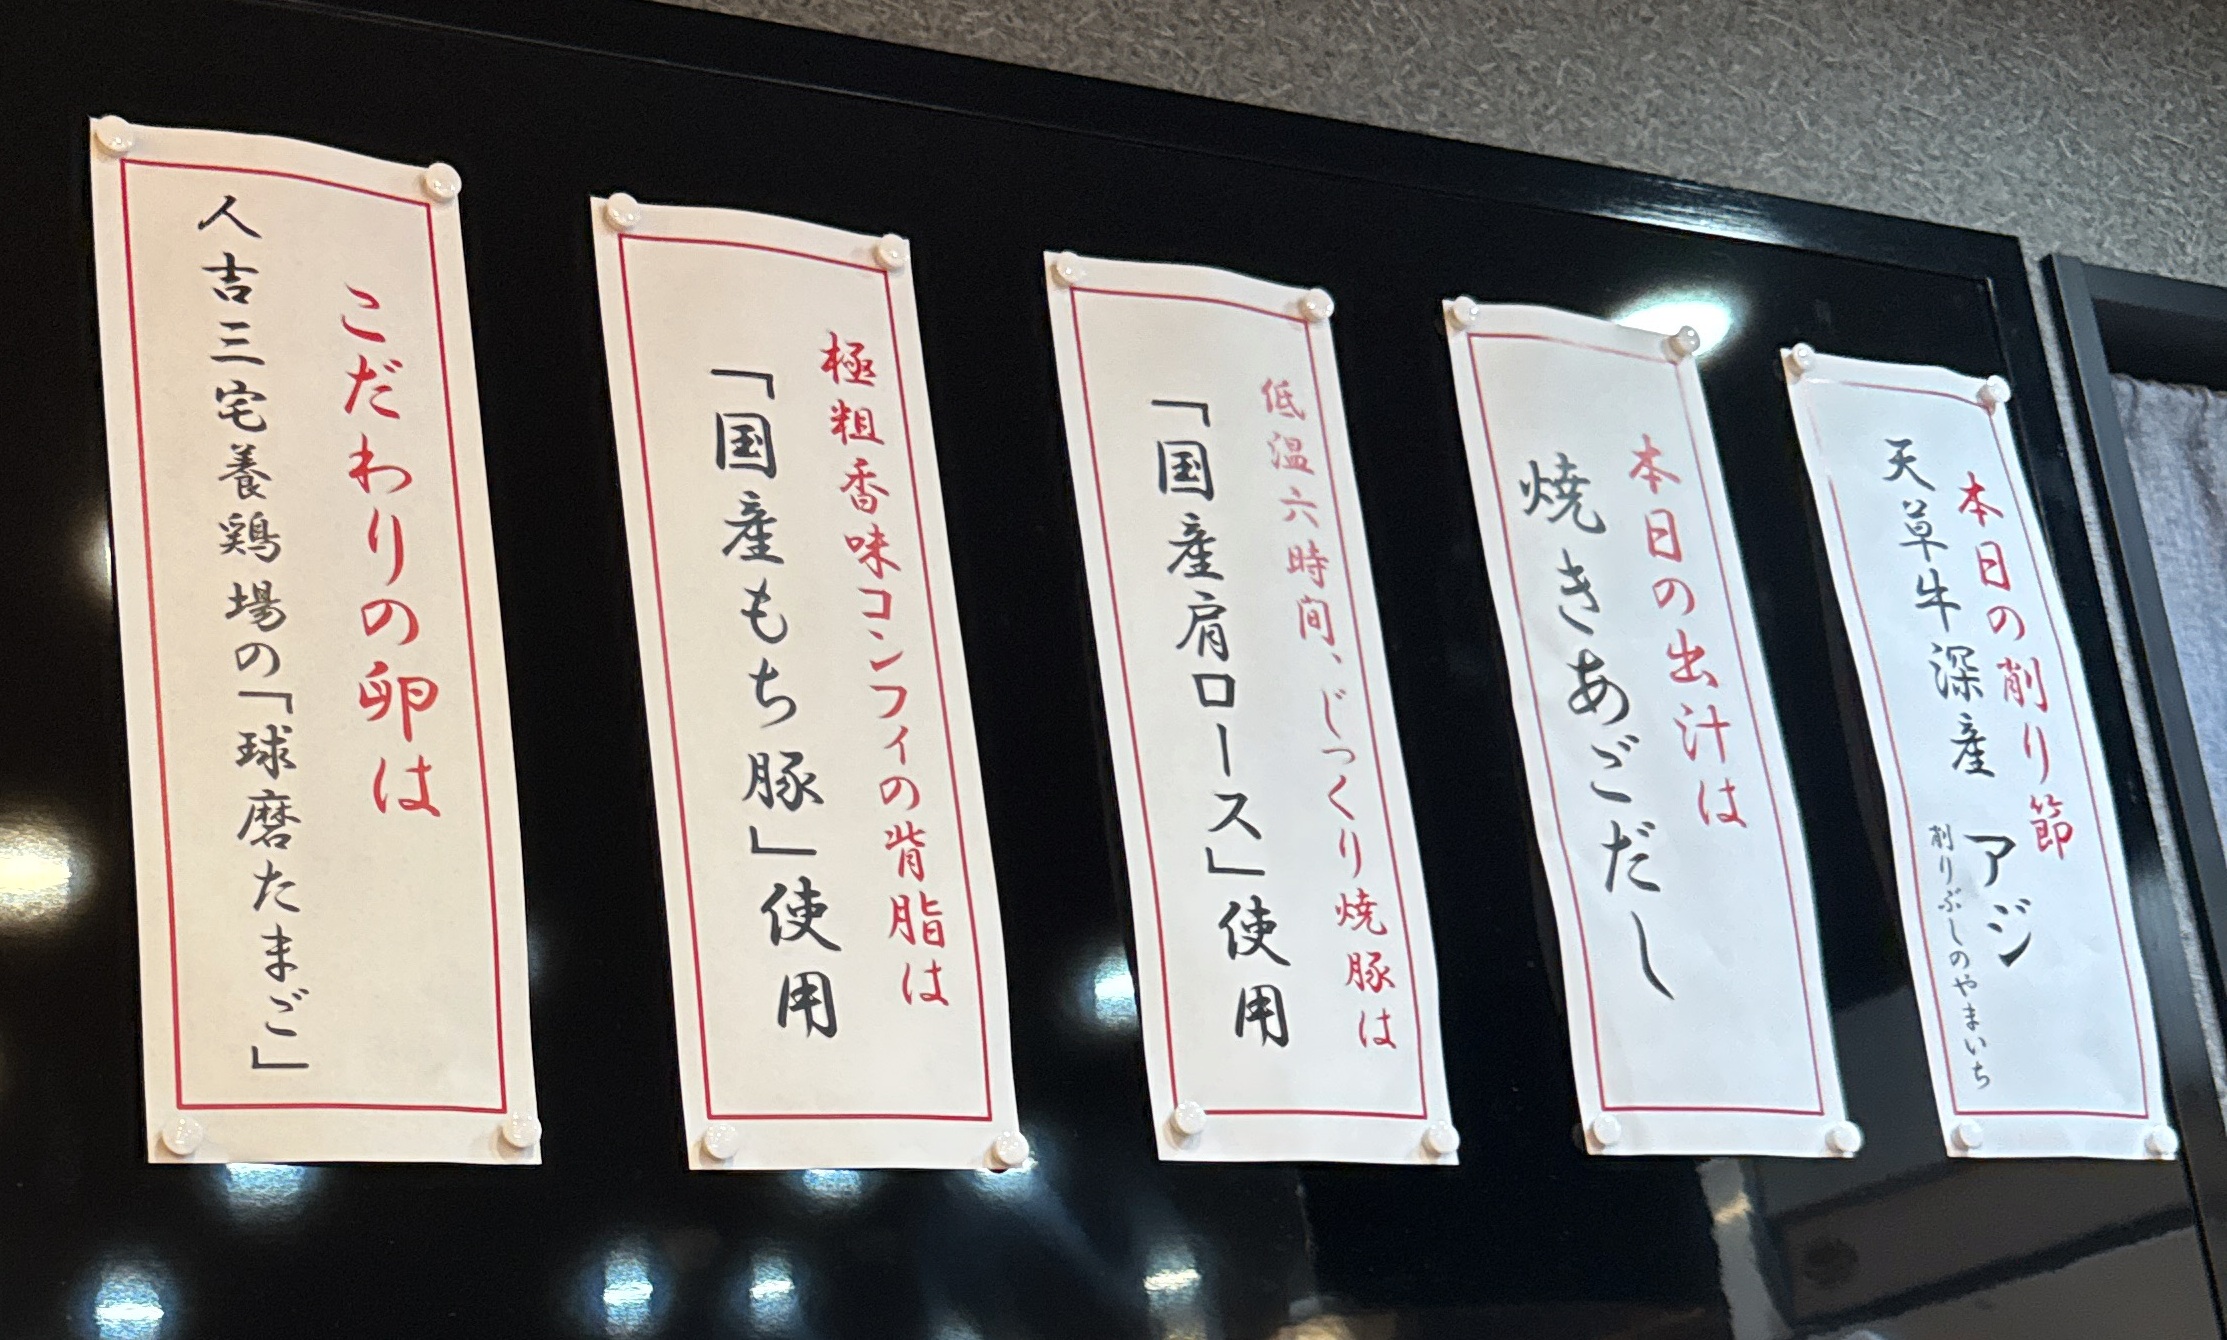 本日の削り節
天草牛深産 アジ
削りぶしのやまいち
本日の出汁は
焼きあごだし
低温六時間、じっくり焼豚は
「国産肩ロース」使用
極粗香味コンフィの背脂は
「国産もち豚」使用
こだわりの卵は
人吉三宅養鶏場の「球磨たまご」